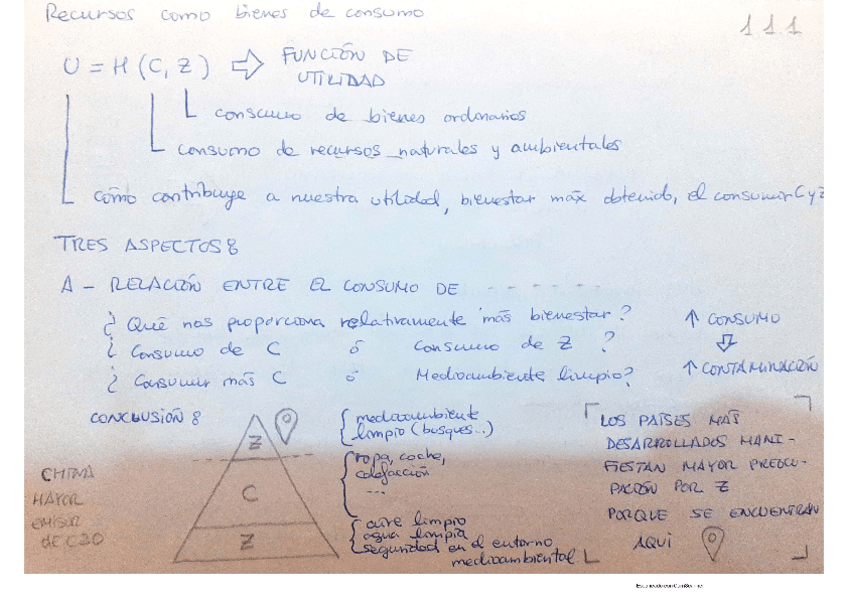 Recursos como bienes de consumo
111
U = H (C, Z) ⇨ FUNCIÓN DE
UTILIDAD
consumo de bienes ordinarios
consumo de recursos naturales y ambientales
cómo contribuye a nuestra utilidad, bienestar máx obtenido, el consumir C y Z
TRES ASPECTOS:
A - RELACIÓN ENTRE EL CONSUMO DE - - - - - -
¿ Qué nos proporciona relativamente más bienestar?
¿ Consumo de C ó Consumo de Z ?
¿ Consumir más C ó Medioambiente limpio?
↑ CONSUMO
⇩
↑ CONTAMINACIÓN
CONCLUSIÓN:
Z
C
Z
medioambiente
limpio (bosques...)
ropa, coche,
calefacción
...
aire limpio
agua limpia
seguridad en el entorno
medioambiental
CHINA
MAYOR
EMISOR
de C2O
LOS PAÍSES MÁS
DESARROLLADOS MANI-
FIESTAN MAYOR PREOCU-
PACIÓN POR Z
PORQUE SE ENCUENTRAN
AQUÍ
Escaneado con CamScanner